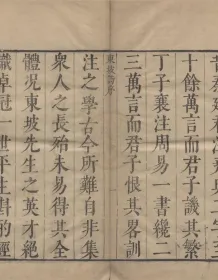 十餘萬言而君子譏其繁
丁子襄注周易一書纔二
三萬言而君子恨其畧訓
東坡詩序
注之學古今所難自非集
衆人之長殆未易得其全
體況東坡先生之英才絕
識卓冠一世平生斟酌經